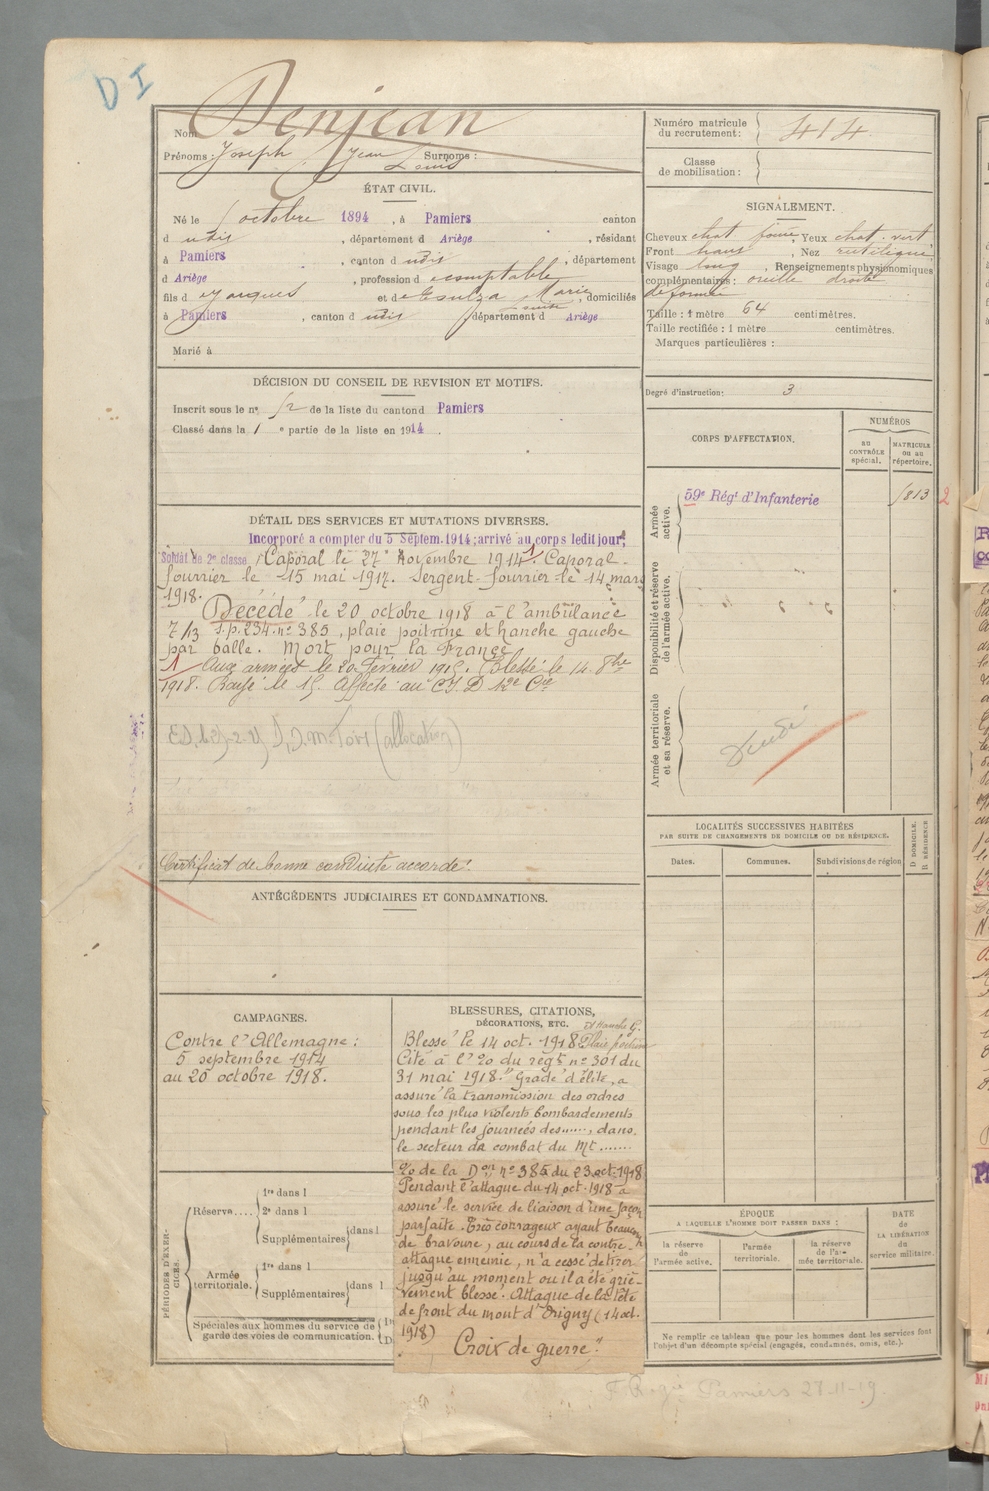 D I
Nom Denjean
Prénoms : Joseph Jean Louis Surnoms :
Numéro matricule du recrutement : 414
Classe de mobilisation :
ÉTAT CIVIL.
Né le octobre 1894, à Pamiers canton
d udis, département d Ariège, résidant
à Pamiers, canton d udis, département
d Ariège, profession d comptable
fils d Jacques et de Marie Louise, domiciliés
à Pamiers, canton d udis, département d Ariège
Marié à
SIGNALEMENT.
Cheveux chat foncé, Yeux chat. vert
Front haut, Nez rectiligne
Visage long, Renseignements physionomiques
complémentaires : oreille droite
déformée
Taille : 1 mètre 64 centimètres.
Taille rectifiée : 1 mètre centimètres.
Marques particulières :
Degré d'instruction : 3
DÉCISION DU CONSEIL DE REVISION ET MOTIFS.
Inscrit sous le n° 52 de la liste du canton d Pamiers
Classé dans la 1 e partie de la liste en 1914.
DÉTAIL DES SERVICES ET MUTATIONS DIVERSES.
Incorporé a compter du 5 Septem. 1914; arrivé au corps ledit jour,
Soldat de 2e classe, Caporal le 27 Novembre 1914. 1 Caporal-
fourrier le 15 mai 1917. Sergent-fourrier le 14 mars
1918.
Décédé le 20 octobre 1918 à l'ambulance
7/13 S.p. 234. n° 385, plaie poitrine et hanche gauche
par balle. Mort pour la France
1 Aux armées le 20 février 1915. Blessé le 14 8bre
1918. le 15. Affecté au C.I.D 12e Cie
(allocation)
Certificat de bonne conduite accordé.
CORPS D'AFFECTATION.
NUMÉROS
au CONTRÔLE spécial.
MATRICULE ou au répertoire.
Armée active.
59e Régt d'Infanterie
5813
2
Disponibilité et réserve de l'armée active.
Armée territoriale et sa réserve.
LOCALITÉS SUCCESSIVES HABITÉES
PAR SUITE DE CHANGEMENTS DE DOMICILE OU DE RÉSIDENCE.
Dates.
Communes.
Subdivisions de région
D DOMICILE.
R RÉSIDENCE
ANTÉCÉDENTS JUDICIAIRES ET CONDAMNATIONS.
CAMPAGNES.
Contre l'Allemagne :
5 septembre 1914
au 20 octobre 1918.
BLESSURES, CITATIONS,
DÉCORATIONS, ETC.
et Hanche G.
Blessé le 14 oct. 1918 Plaie poitrine
Cité à l'%o du régt n° 301 du
31 mai 1918. "Gradé d'élite, a
assuré la transmission des ordres
sous les plus violents bombardements
pendant les journées des......, dans
le secteur de combat du Mt.......
%o de la Don n° 385 du 23 oct. 1918
Pendant l'attaque du 14 oct. 1918 a
assuré le service de liaison d'une façon
parfaite. Très courageux ayant beaucoup
de bravoure, au cours de la contre-
attaque ennemie, n'a cessé de tirer
jusqu'au moment où il a été griè-
vement blessé. Attaque de la tête
de front du mont d'Origny (14 oct.
1918)
Croix de guerre."
PÉRIODES D'EXERCICES.
Réserve....
1re dans l
2e dans l
Supplémentaires dans l
Armée territoriale.
1re dans l
Supplémentaires dans l
Spéciales aux hommes du service de garde des voies de communication.
ÉPOQUE
A LAQUELLE L'HOMME DOIT PASSER DANS :
la réserve de l'armée active.
l'armée territoriale.
la réserve de l'armée territoriale.
DATE de LA LIBÉRATION du service militaire.
Ne remplir ce tableau que pour les hommes dont les services font
l'objet d'un décompte spécial (engagés, condamnés, omis, etc.).
Pamiers 27-11-19.